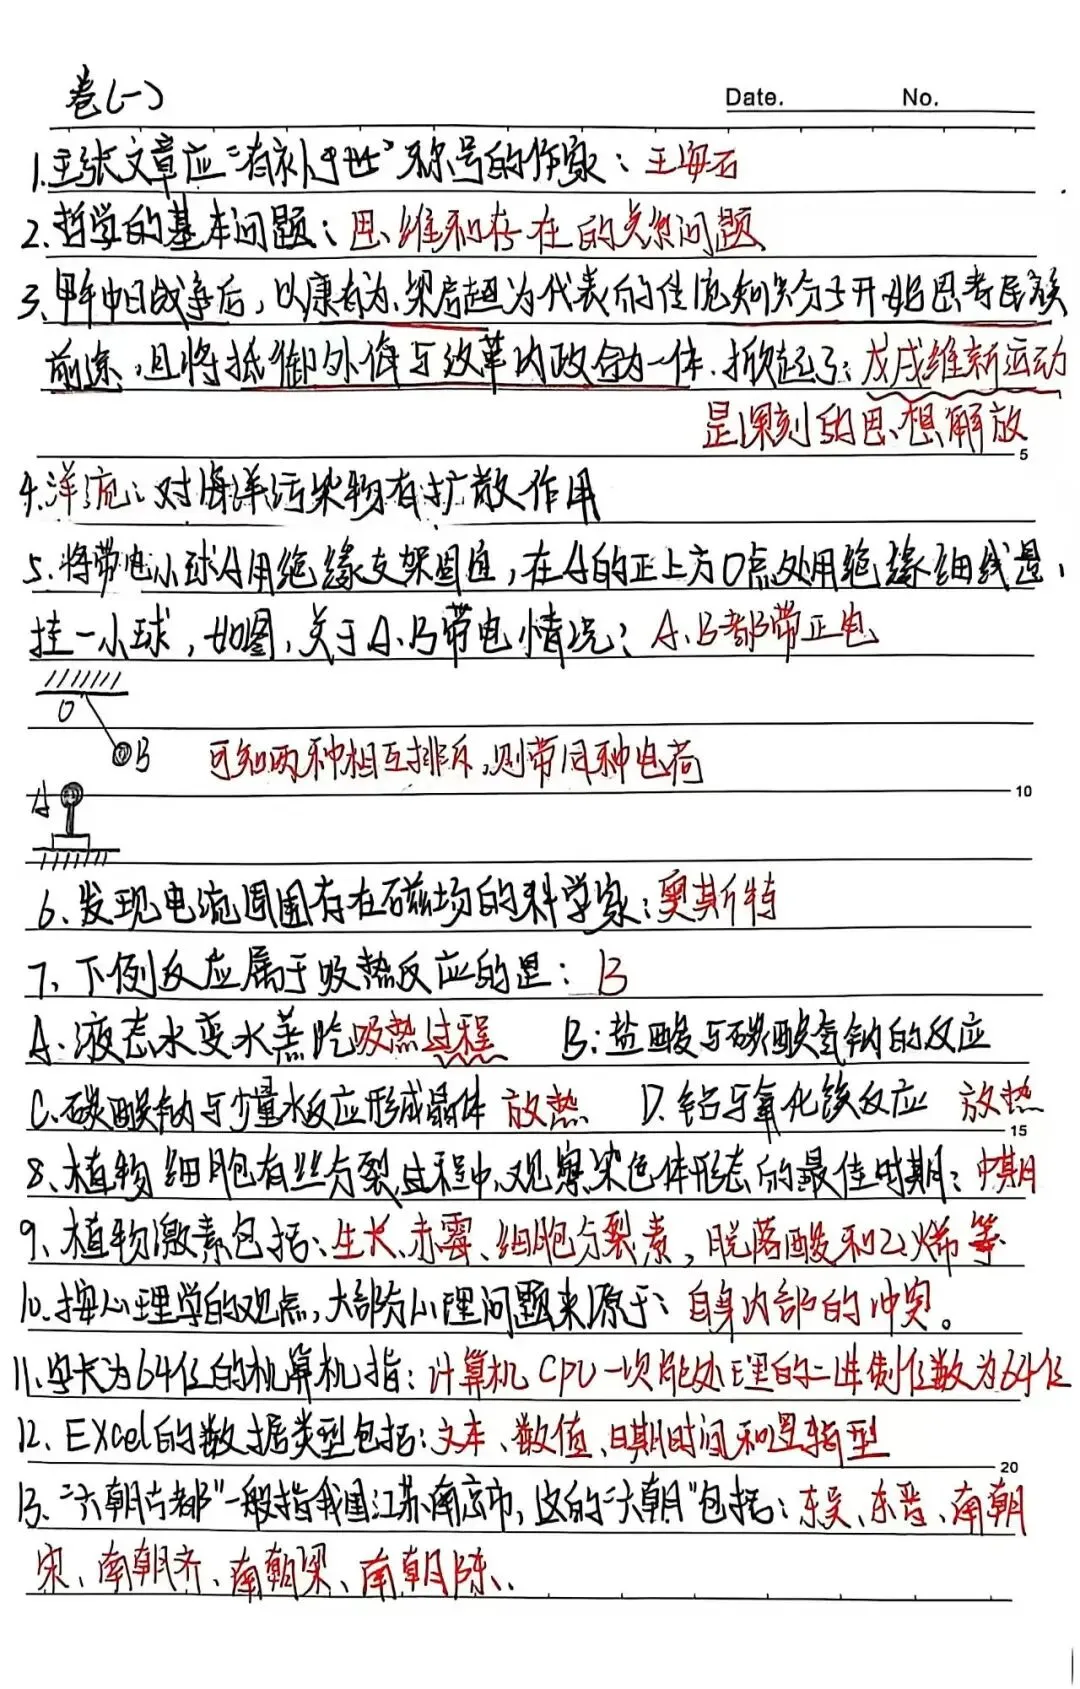 卷(一)
Date. No.
1.主张文章应"有补于世"称号的作家：王安石
2.哲学的基本问题：思维和存在的关系问题
3.甲午中日战争后，以康有为、梁启超为代表的传统知识分子开始思考民族
前途，且将抵御外侮与改革内政合为一体.掀起了：戊戌维新运动
是深刻的思想解放
5
4.洋流：对海洋污染物有扩散作用
5.将带电小球A用绝缘支架固定，在A的正上方O点处用绝缘细线悬
挂一小球，如图，关于A.B带电情况：A.B都带正电
O
B 可知两种相互排斥,则带同种电荷
A
10
6、发现电流周围存在磁场的科学家：奥斯特
7、下例反应属于吸热反应的是：B
A.液态水变水蒸汽吸热过程 B:盐酸与碳酸氢钠的反应
C.碳酸钠与少量水反应形成晶体 放热 D.铝与氧化铁反应 放热
15
8、植物细胞有丝分裂过程中,观察染色体形态的最佳时期：中期
9、植物激素包括：生长、赤霉、细胞分裂素，脱落酸和乙烯等
10.按心理学的观点,大部分心理问题来源于：自身内部的冲突。
11.字长为64位的机算机指：计算机CPU一次能处理的二进制位数为64位
12.EXcel的数据类型包括:文本、数值、日期时间和逻辑型
20
13."六朝古都"一般指我国江苏南京市，这的"六朝"包括：东吴、东晋、南朝
宋、南朝齐、南朝梁、南朝陈.